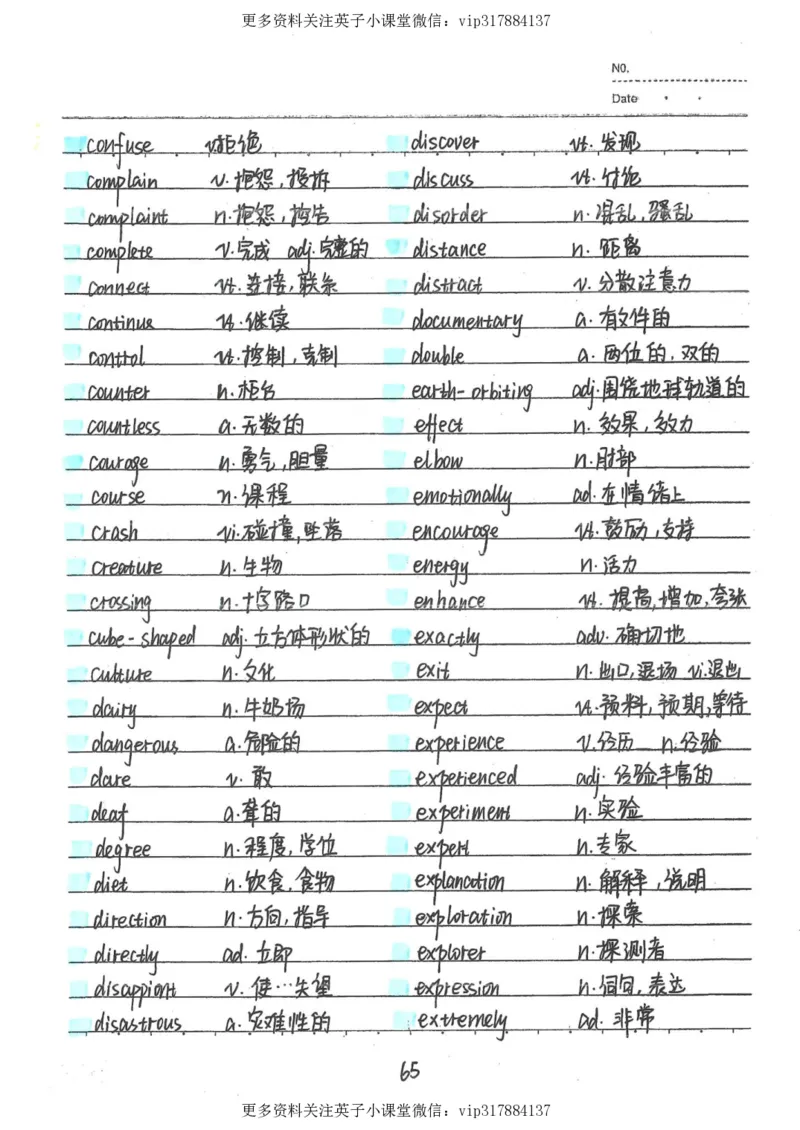 更多资料关注英子小课堂微信：vip317884137
NO.
Date
confuse v.拒绝 discover vt. 发现
complain v. 抱怨,投诉 discuss vt. 讨论
complaint n.抱怨,控告 disorder n. 混乱,骚乱
complete v.完成 adj.完整的 distance n. 距离
connect vt.连接,联系 distract v. 分散注意力
continue vt.继续 documentary a. 有文件的
control vt.控制,克制 double a. 两位的,双的
counter n.柜台 earth-orbiting adj.围绕地球轨道的
countless a.无数的 effect n. 效果,效力
courage n.勇气,胆量 elbow n.肘部
course n.课程 emotionally ad. 在情绪上
crash vi.碰撞,坠落 encourage vt.鼓励,支持
creature n.生物 energy n.活力
crossing n.十字路口 enhance vt. 提高,增加,夸张
cube-shaped adj.立方体形状的 exactly adv.确切地
culture n.文化 exit n.出口,退场 vi.退出
dairy n.牛奶场 expect vt.预料,预期,等待
dangerous a.危险的 experience v.经历 n.经验
dare v.敢 experienced adj.经验丰富的
deaf a.聋的 experiment n.实验
degree n.程度,学位 expert n.专家
diet n.饮食,食物 explanation n.解释,说明
direction n.方向,指导 exploration n.探索
directly ad.立即 explorer n.探测者
disappiont v. 使…失望 expression n.词句,表达
disastrous a.灾难性的 extremely ad. 非常
65
更多资料关注英子小课堂微信：vip317884137